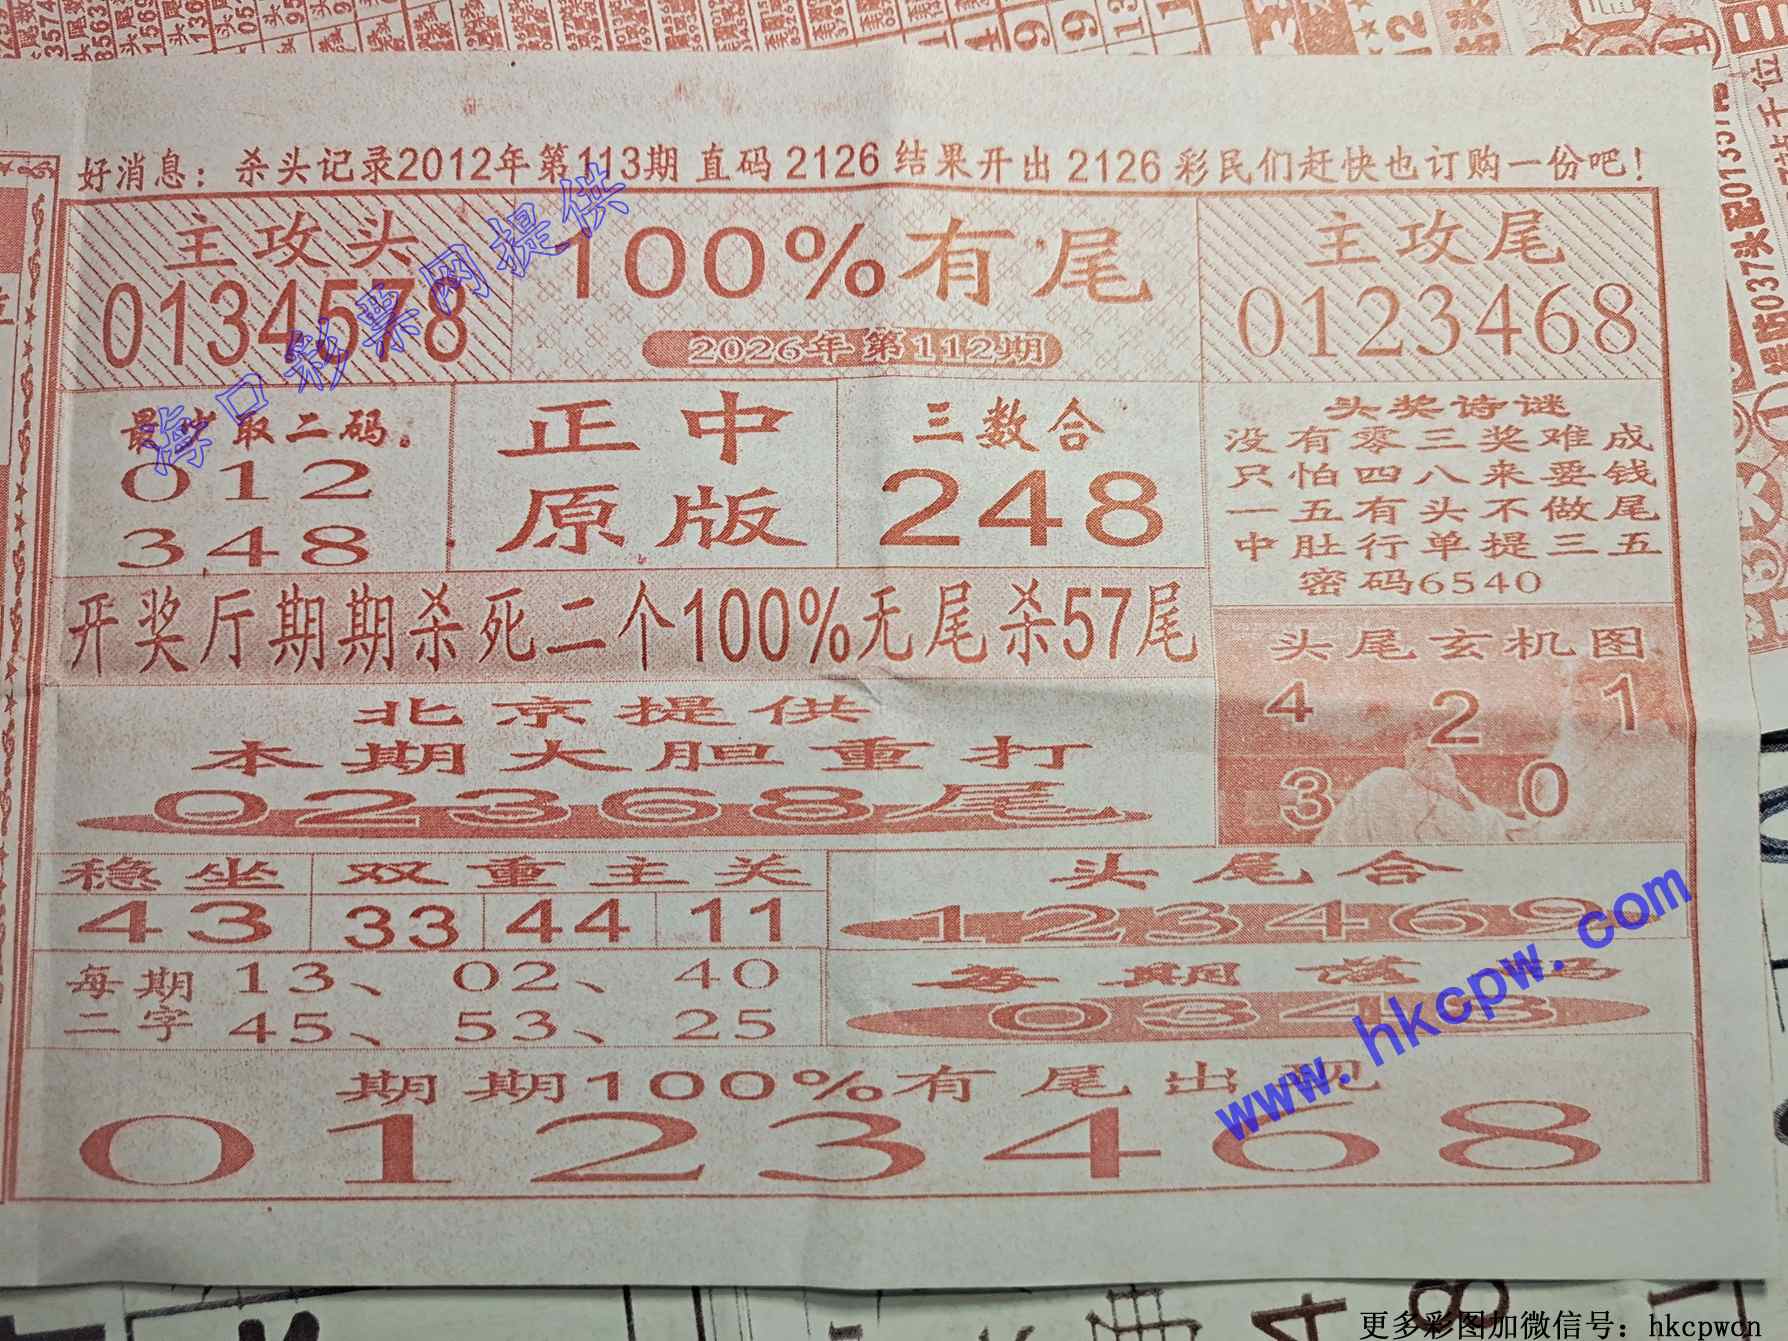 好消息：杀头记录2012年第113期 直码 2126 结果开出 2126 彩民们赶快也订购一份吧！
主攻头
0134578
100%有尾
2026年第112期
主攻尾
0123468
最少取二码。
012
348
正中
原版
三数合
248
头奖诗谜
没有零三奖难成
只怕四八来要钱
一五有头不做尾
中肚行单提三五
密码6540
开奖厅期期杀死二个100%无尾杀57尾
头尾玄机图
4 2 1
3 0
北京提供
本期大胆重打
02368尾
稳坐
43
双重主关
33 44 11
头尾合
123469
每期
二字
13、 02、 40
45、 53、 25
每期 码
034
期期100%有尾出现
0123468
海口彩票网提供
www.hkcpw.com
更多彩图加微信号：hkcpwcn